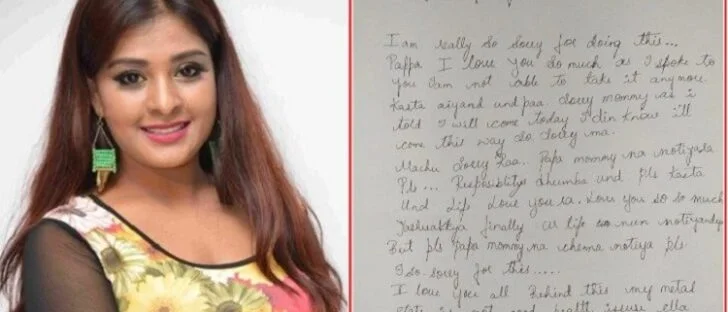 I am really so sorry for doing this...
Pappa I love you so much as I spoke to
you I am not able to take it anymore.
Kasta aiyand und paa. Sorry mommy as i
told I will come today I din know i'll
come this way so sorry ma.
Machu sorry kaa. Papa mommy na notiyada
Pls... Resposiblitys dhumba und pls kasta
und life love you sa. love you so so much
finally life nin
But pls Papa mommy na chenna notiya pls
I so sorry for this.....
I love you all Behind this my metal
state is not good health issuse ella